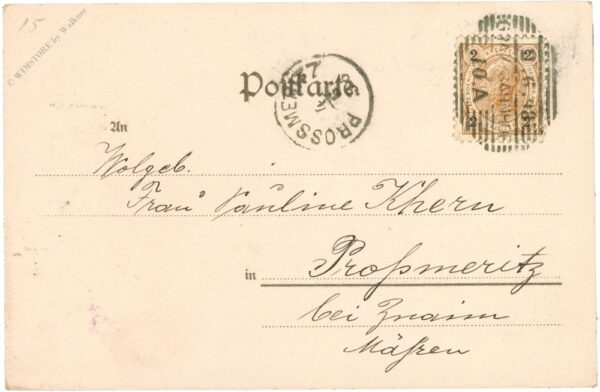 15
© WIMSTORE by Walkner
Postkarte.
PROSSMERITZ
2 2
10 A
2 2
An
Wolgeb.
Frau Pauline Khern
in Proßmeritz
bei Znaim
Mähren